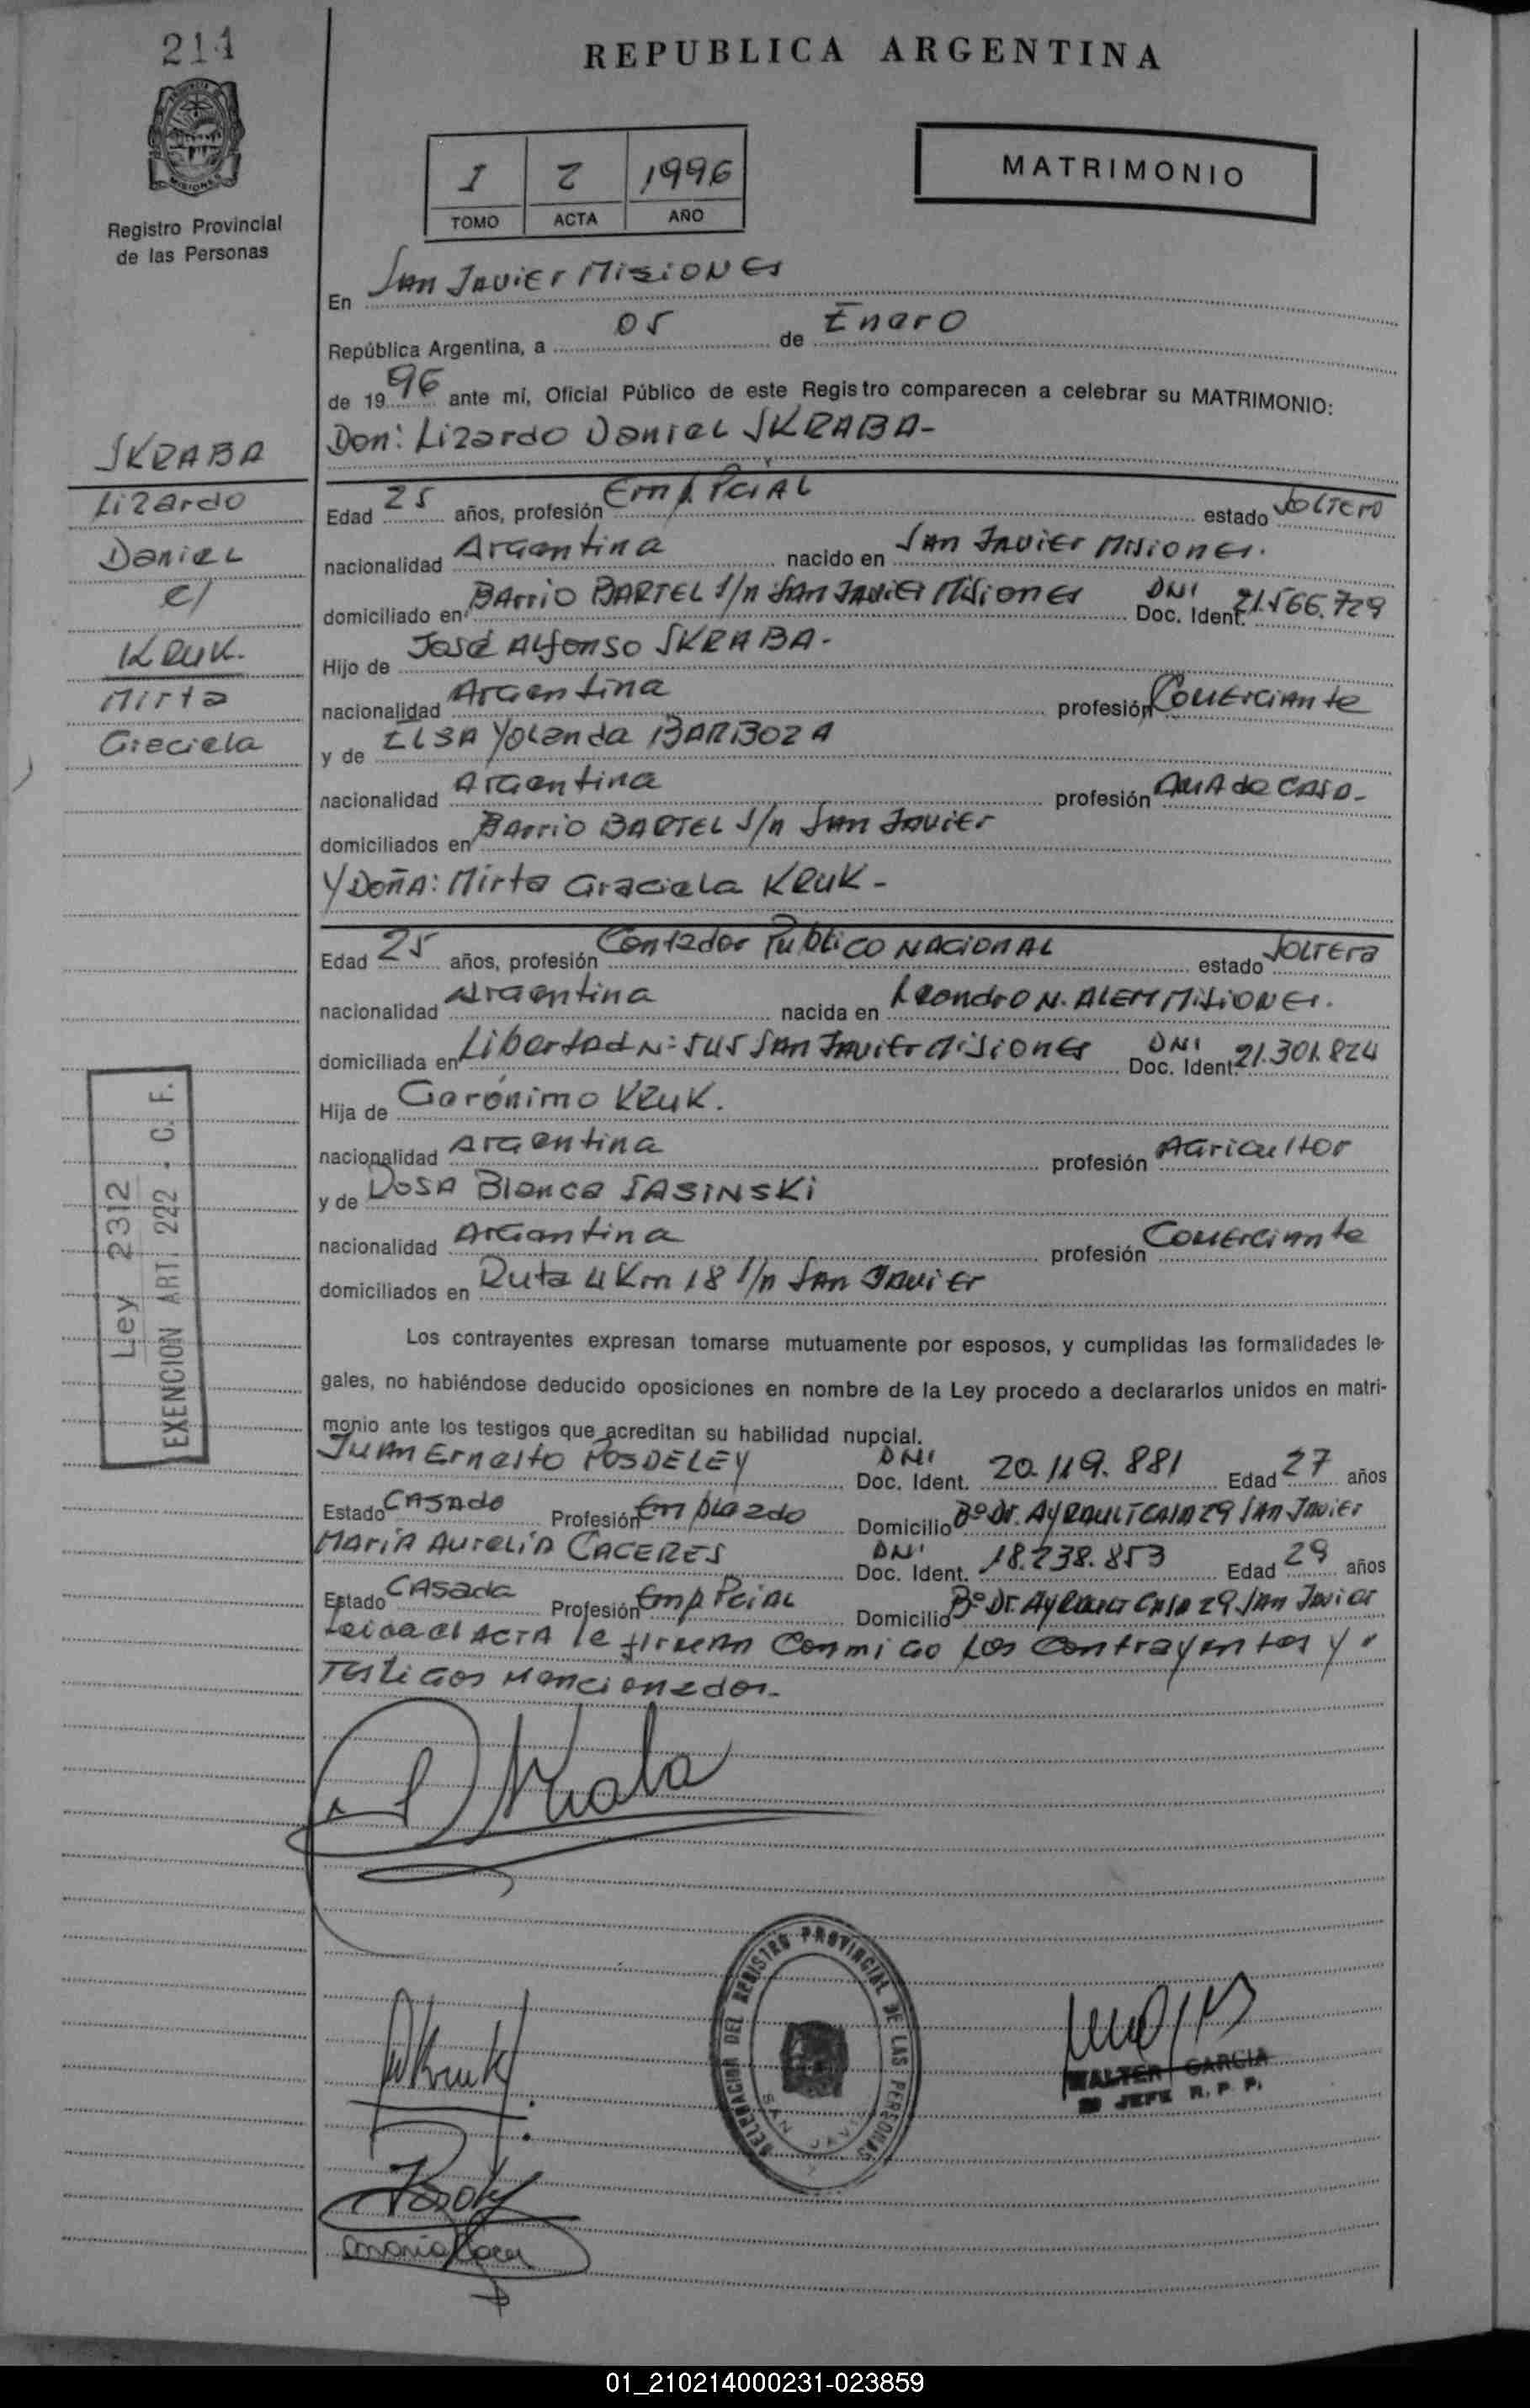 214
REPUBLICA ARGENTINA
MISIONES
Registro Provincial
de las Personas
I 2 1996
TOMO ACTA AÑO
MATRIMONIO
En San Javier Misiones
República Argentina, a 05 de Enero
de 1996 ante mí, Oficial Público de este Registro comparecen a celebrar su MATRIMONIO:
Don: Lizardo Daniel SKRABA-
SKRABA
Lizardo
Daniel
c/
KRUK.
Mirta
Graciela
Edad 25 años, profesión Emp. Pcial estado Soltero
nacionalidad Argentina nacido en San Javier Misiones.
domiciliado en Barrio BARTEL s/n San Javier Misiones DNI Doc. Ident. 21.566.729
Hijo de José Alfonso SKRABA-
nacionalidad Argentina profesión Comerciante
y de ELSA Yolanda BARBOZA
nacionalidad Argentina profesión Ama de casa-
domiciliados en Barrio BARTEL s/n San Javier
Y DOÑA: Mirta Graciela KRUK-
Edad 25 años, profesión Contador Publico NACIONAL estado Soltera
nacionalidad Argentina nacida en Leandro N. ALEM Misiones.
domiciliada en Libertad N= 545 San Javier Misiones DNI Doc. Ident. 21.301.824
Hija de Gerónimo KRUK.
nacionalidad Argentina profesión Agricultor
y de ROSA Blanca SASINSKI
nacionalidad Argentina profesión Comerciante
domiciliados en Ruta 4 Km 18 s/n San Javier
Ley 2312
EXENCION ART. 222 . C. F.
Los contrayentes expresan tomarse mutuamente por esposos, y cumplidas las formalidades le-
gales, no habiéndose deducido oposiciones en nombre de la Ley procedo a declararlos unidos en matri-
monio ante los testigos que acreditan su habilidad nupcial.
Juan Ernesto POSDELEY DNI Doc. Ident. 20.119.881 Edad 27 años
Estado Casado Profesión Empleado Domicilio Bº Dr. AYRAULT CASA 29 San Javier
Maria Aurelia CACERES DNI Doc. Ident. 18.238.853 Edad 29 años
Estado Casada Profesión Emp Pcial Domicilio Bº Dr. Ayrault Casa 29 San Javier
Leida el ACTA la firman conmigo los contrayentes y
Testigos mencionados.-
DELEGACION DEL REGISTRO PROVINCIAL DE LAS PERSONAS
SAN JAVI
WALTER GARCIA
JEFE R. P. P.
01_210214000231-023859